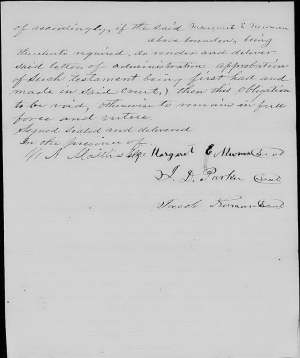 of accordingly, if the said Margaret E Newman
above bounden, being
thereunto required, do render and deliver
said letters of administration approbation
of Such testament being first had and
made in Said Court, then this obligation
to be void, otherwise to remain in full
force and virtue
Signed Sealed and delivered
In the presence of
Margaret E Newman Seal
J. D. Parker Seal
Jacob Seal